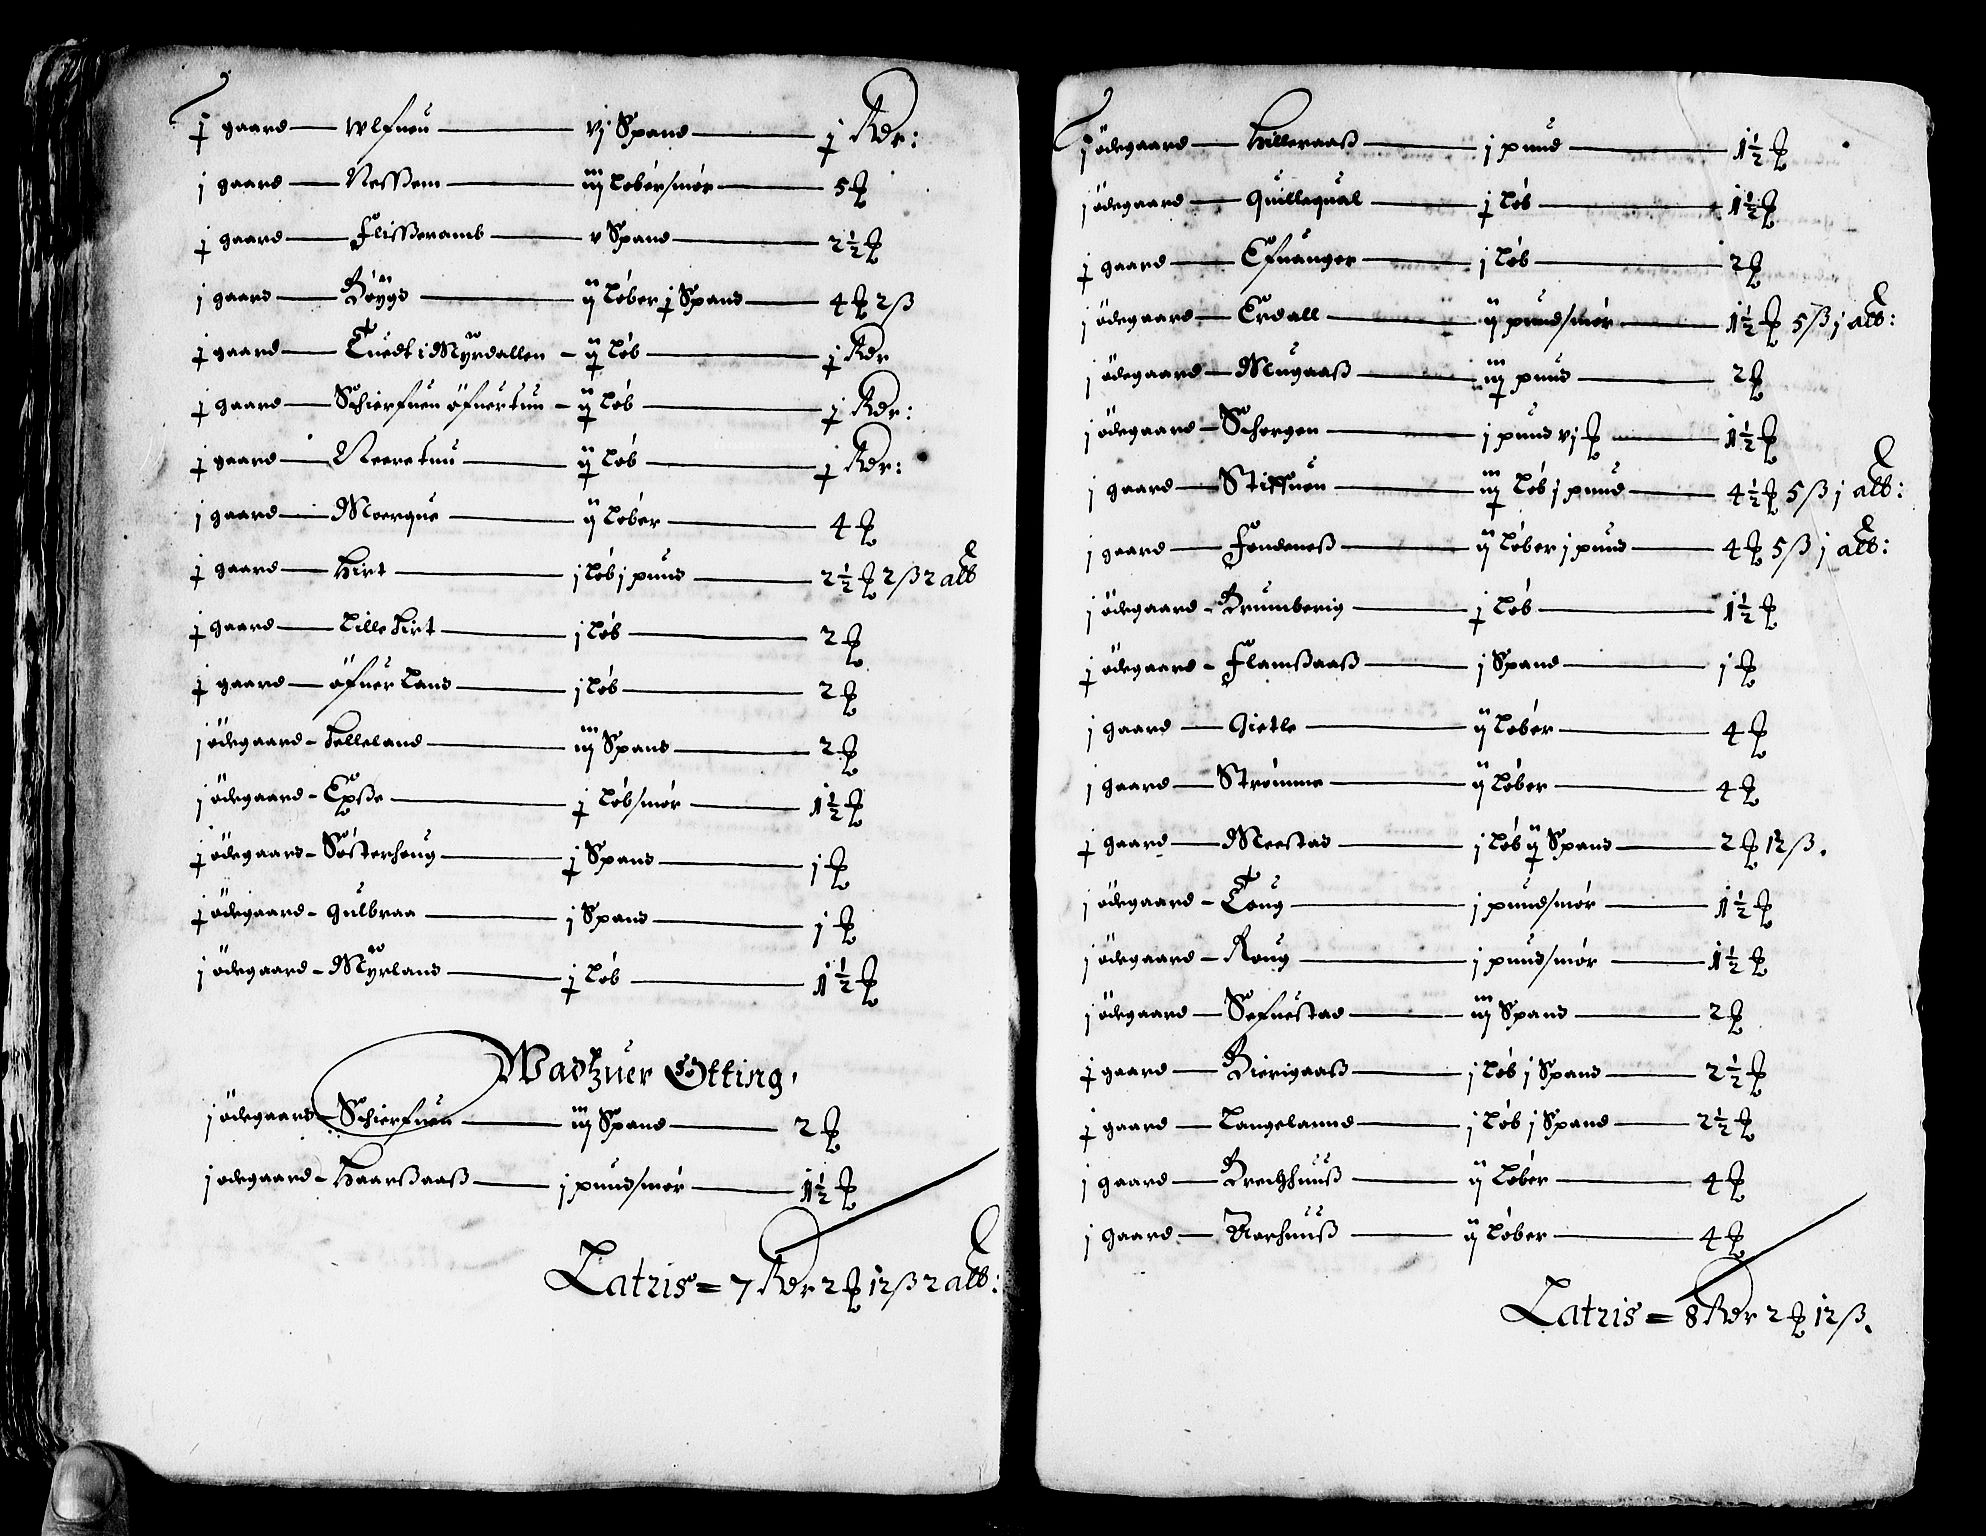 j gaard — Wlfuen — vj Spand — j Rdr:
j gaard — Nesßem — iij løber smør — 5 ℔
j gaard — Flisßeramb — v Spand — 2½ ℔
j gaard — Böygd — ij løber j Spand — 4 ℔ 2 ß
j gaard — Tuedt i Myrdallen — ij løb — j Rdr
j gaard — Schierfuen öfuertun — ij løb — j Rdr:
j gaard — Neeretuu — ij løb — j Rdr:
j gaard — Moerque — ij løber — 4 ℔
j gaard — Hirt — j løb j pund — 2½ ℔ 2 ß 2 alb
j gaard — Lille Hirt — j løb — 2 ℔
j gaard — öfuer land — j løb — 2 ℔
j ödegaard — Helleland — iij Spand — 2 ℔
j ödegaard — Epße — j løb smør — 1½ ℔
j ödegaard — Søsterhoug — j Spand — j ℔
j ödegaard — Gulbraa — j Spand — j ℔
j ödegaard — Myrland — j løb — 1½ ℔
Wadtzuer Otting,
j ödegaard — Schierfuen — iij Spand — 2 ℔
j ödegaard — Haarßaaß — j pund smør — 1½ ℔
Latris = 7 Rdr 2 ℔ 12 ß 2 alb:
j ödegaard — Hilleraaß — j pund — 1½ ℔
j ödegaard — Quillequal — j løb — 1½ ℔
j gaard — Efuanger — j løb — 2 ℔
j ödegaard — Erdall — ij pund smør — 1½ ℔ 5 ß j alb:
j ödegaard — Mugaaß — iij pund — 2 ℔
j ödegaard — Schorgen — j pund vj ℔ — 1½ ℔
j gaard — Stiffuen — iij løb j pund — 4½ ℔ 5 ß j alb:
j gaard — Fondeneß — ij løber j pund — 4 ℔ 5 ß j alb:
j ödegaard — Brumberig — j løb — 1½ ℔
j ödegaard — Flamßaaß — j Spand — j ℔
j gaard — Gietle — ij løber — 4 ℔
j gaard — Strømme — ij løber — 4 ℔
j gaard — Meestad — j løb ij Spand — 2 ℔ 12 ß.
j ödegaard — Toug — j pund smør — 1½ ℔
j ödegaard — Roug — j pund smør — 1½ ℔
j ödegaard — Sefuestad — iij Spand — 2 ℔
j gaard — Bierigaaß — j løb j Spand — 2½ ℔
j gaard — Langelannd — j løb j Spand — 2½ ℔
j gaard — Brechhuuß — ij løber — 4 ℔
j gaard — Aarhuuß — ij løber — 4 ℔
Latris = 8 Rdr 2 ℔ 12 ß.